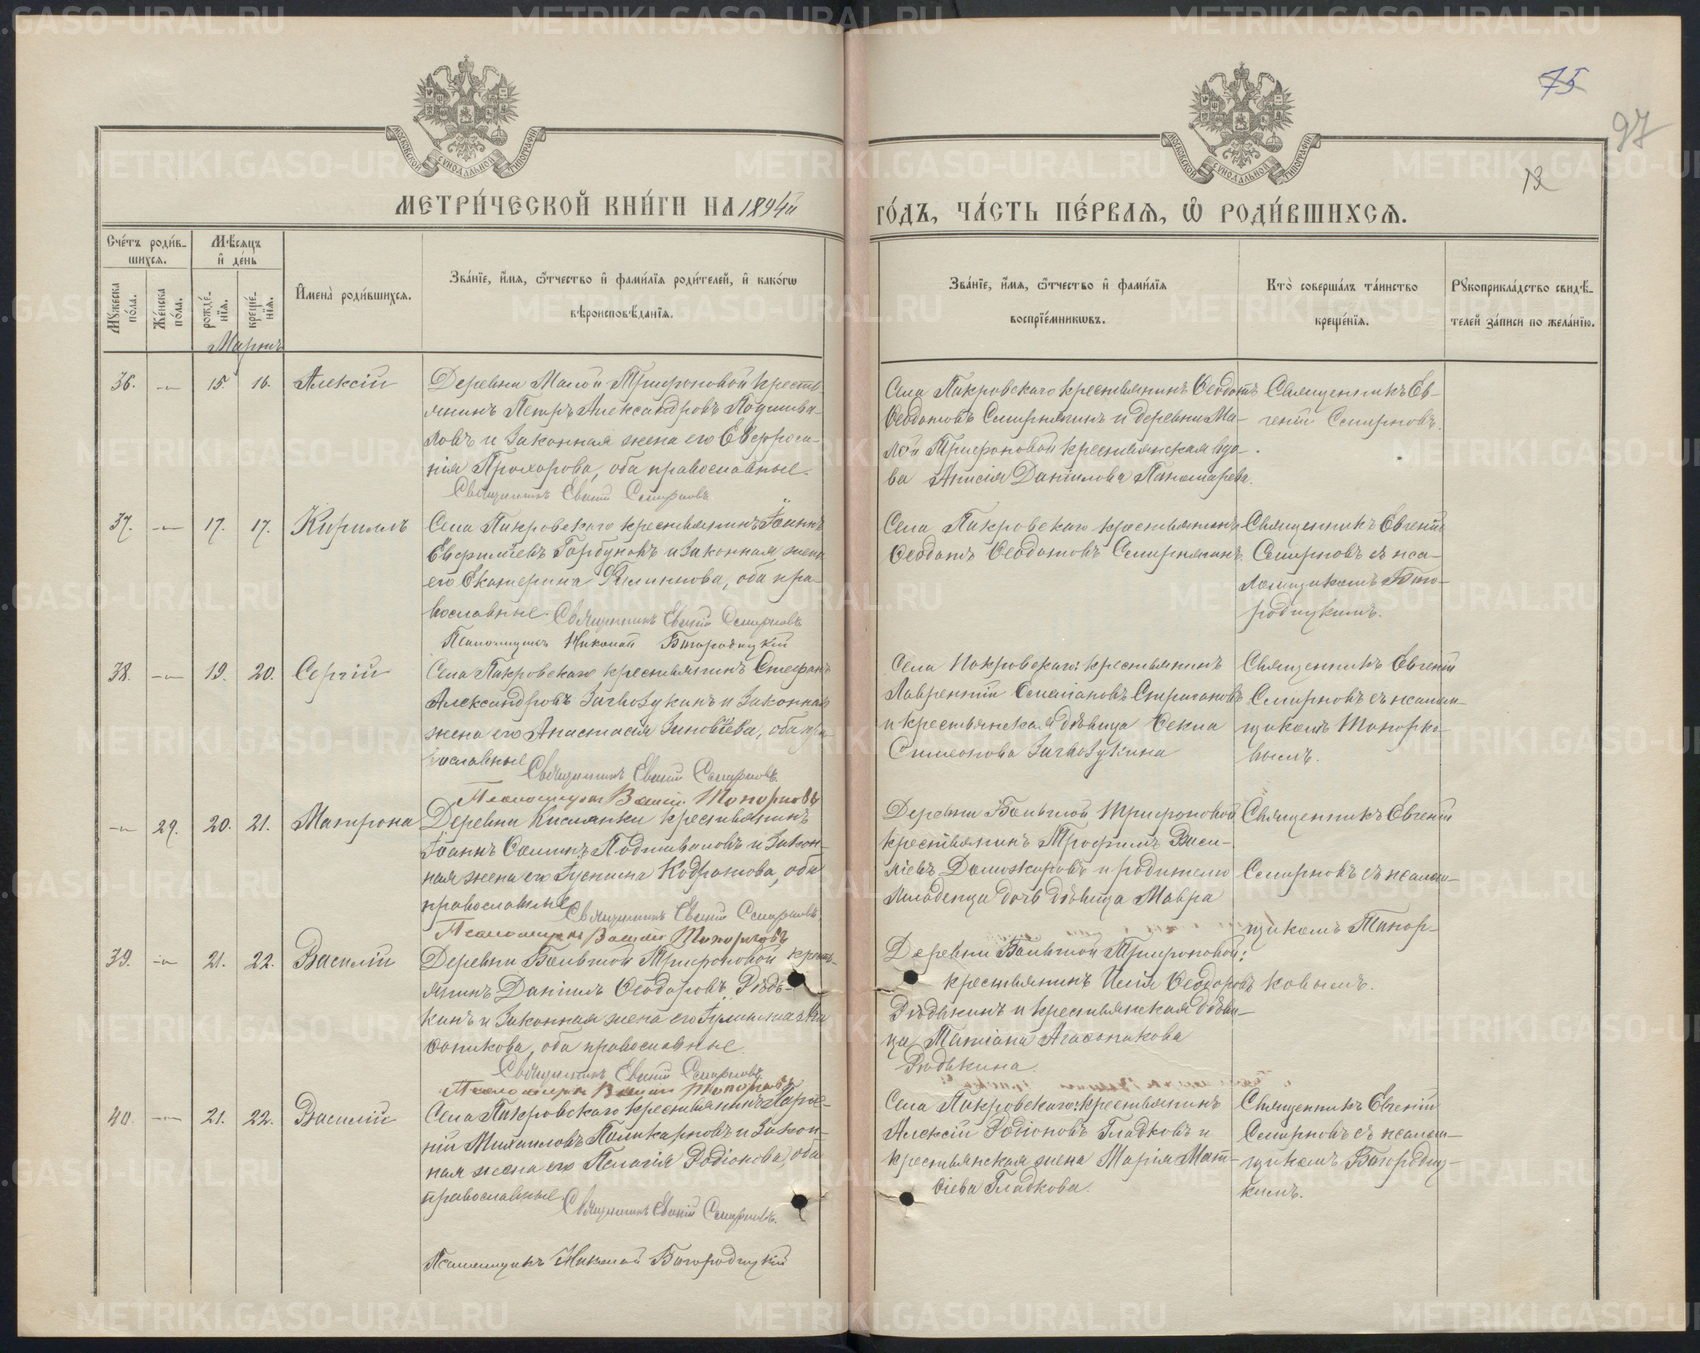 75
97
12
МЕТРИ́ЧЕСКОЙ КНИ́ГИ НА 1894й
ГО́ДЪ, ЧА́СТЬ ПЕ́РВАЯ, Ѡ РОДИ́ВШИХСЯ.
Сче́тъ роди́в-
шихся.
Мѣ́сяцъ
и де́нь
Му́жеска
по́ла.
Же́нска
по́ла.
рожде́-
нїя.
креще́-
нїя.
И҆мена̀ роди́вшихся.
Зва́нїе, и҆́мя, ѻ҆́тчество и҆ фами́лїя роди́телей, и҆ како́гѡ
вѣроисповѣ́данїя.
Зва́нїе, и҆́мя, ѻ҆́тчество и҆ фами́лїя
воспрїе́мникѡвъ.
Кто̀ соверша́лъ та́инство
креще́нїя.
Рукоприкла́дство свидѣ́-
телей за́писи по жела́нїю.
Мартъ
36. 15 16. Алексій
Деревни Малой Трифоновой кресть
янинъ Петръ Александровъ Подшива-
ловъ и законная жена его Евфроси-
нія Прохорова, оба православные.
Священникъ Евгеній Смирновъ
Села Покровскаго крестьянинъ Ѳеодотъ
Ѳеодотовъ Смирнягинъ и деревни Ма-
лой Трифоновой крестьянская вдо-
ва Анисія Даніилова Пономарева.
Священникъ Ев-
геній Смирновъ.
37. 17. 17. Кириллъ
Села Покровскаго крестьянинъ Іоаннъ
Евфиміевъ Горбуновъ и законная жена
его Екатерина, оба пра-
вославные. Священникъ Евгеній Смирновъ
Псаломщикъ Николай Богородицкій
Села Покровскаго крестьянинъ
Ѳеодотъ Ѳеодотовъ Смирнягинъ.
Священникъ Евгеній
Смирновъ съ пса-
ломщикомъ Бого-
родицкимъ.
38. 19. 20. Сергій
Села Покровскаго крестьянинъ Стефанъ
Александровъ Загвозкинъ и законная
жена его Анастасія Зиновіева, оба пра
вославные Священникъ Евгеній Смирновъ.
Псаломщикъ Топорковъ
Села Покровскаго: крестьянинъ
Лаврентій
и крестьянская дѣвица Ѳекла
Симеонова
Священникъ Евгеній
Смирновъ съ псалом-
щикомъ Топорко-
вымъ.
29. 20. 21. Матрона
Деревни Кислянки крестьянинъ
Іоаннъ Подшиваловъ и закон-
ная жена его Іустина Кодратова, оба
православные Священникъ Евгеній Смирновъ
Псаломщикъ Топорковъ
Деревни Большой Трифоновой
крестьянинъ Трофимъ Васи-
ліевъ Доможировъ и родителю
младенца дочь дѣвица Мавра
Священникъ Евгеній
Смирновъ съ псалом-
щикомъ Топор-
ковымъ.
39. 21. 22. Василій
Деревни Большой Трифоновой крест-
янинъ Даніилъ Ѳеодоровъ Рѣдь-
кинъ и законная жена его
оба православные.
Священникъ Евгеній Смирновъ
Псаломщикъ Топорковъ
Деревни Большой Трифоновой:
крестьянинъ Илія Ѳеодоровъ
Рѣдькинъ и крестьянская дѣви-
ца Татіана Агаѳоникова
Рѣдькина.
40. 21. 22. Василій
Села Покровскаго крестьянинъ
Михаиловъ Поликарповъ и закон-
ная жена его Пелагія Родіонова, оба
православные Священникъ Евгеній Смирновъ.
Псаломщикъ Николай Богородицкій
Села Покровскаго: крестьянинъ
Алексій Родіоновъ Гладковъ и
крестьянская жена Марія Мат-
ѳіева Гладкова.
Священникъ Евгеній
Смирновъ съ псалом-
щикомъ Богородиц-
кимъ.